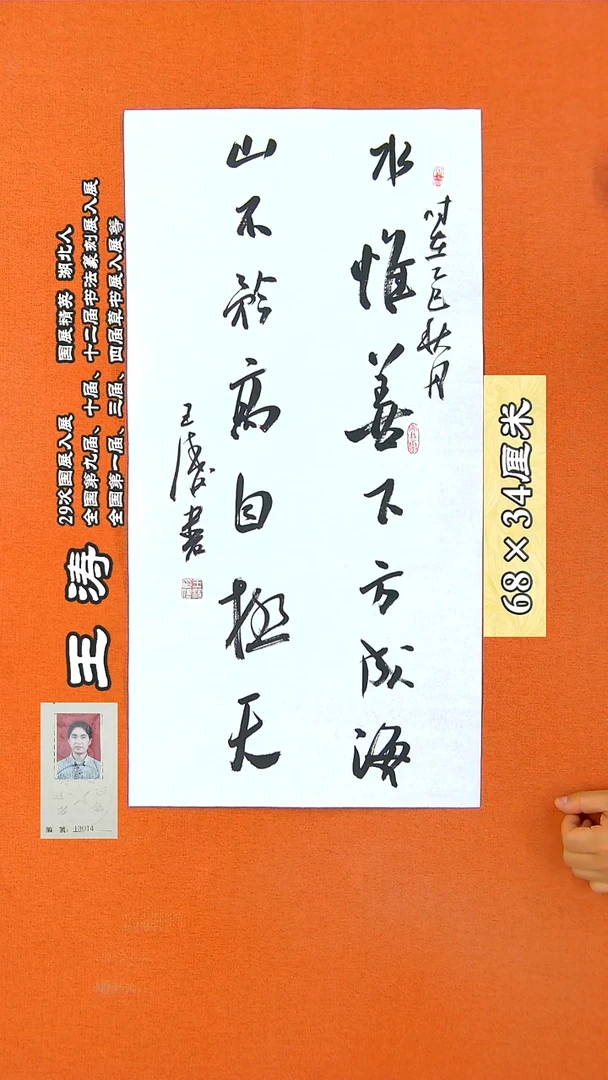 水惟善下方成海
山不矜高自极天
时在乙巳秋月
王涛书
29次国展入展 国展精英 湖北人
全国第九届、十届、十二届书法篆刻展入展
全国第一届、三届、四届草书展入展等
王 涛
68×34厘米
编 号：12014